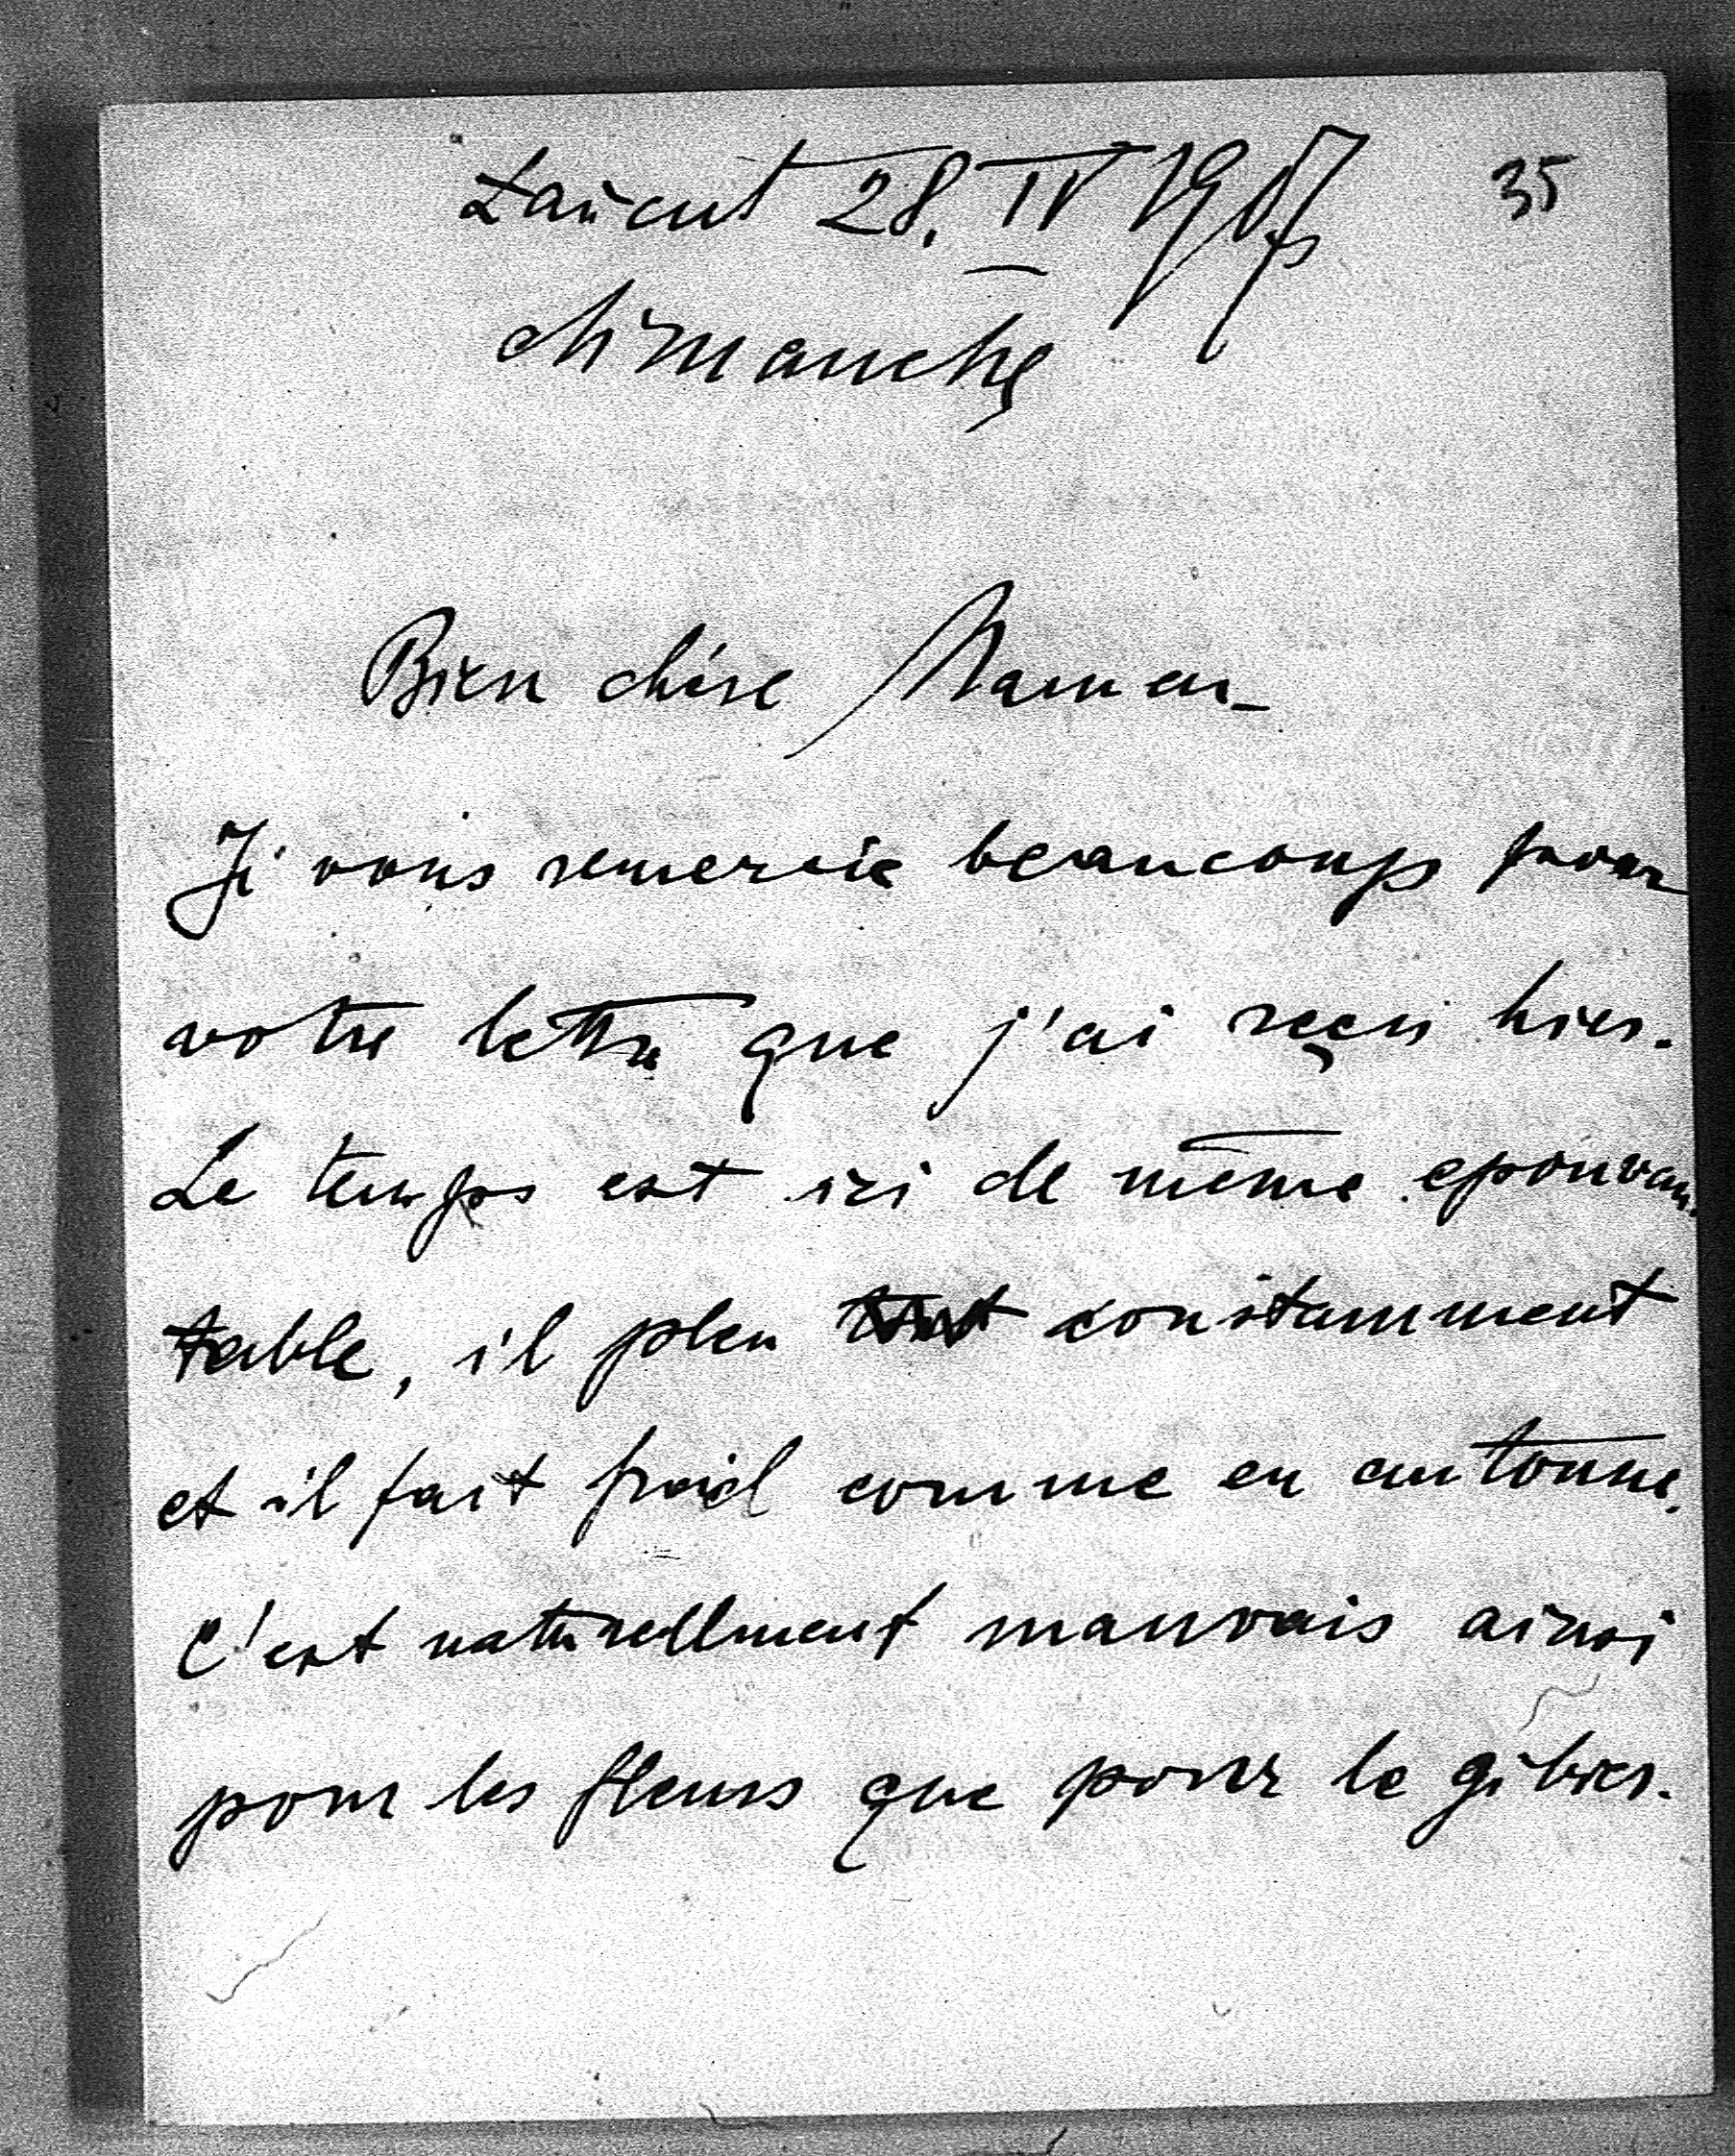 Lańcut 28. IV 1907 35
dimanche
Bien chère Maman_
Je vous remercie beaucoup pour
votre lettre que j'ai reçu hier.
Le temps est ici de même epouvan-
table, il pleu constamment
et il fait froid comme en automne.
C'est naturellment mauvais ainsi
pour les fleurs que pour le gibier.